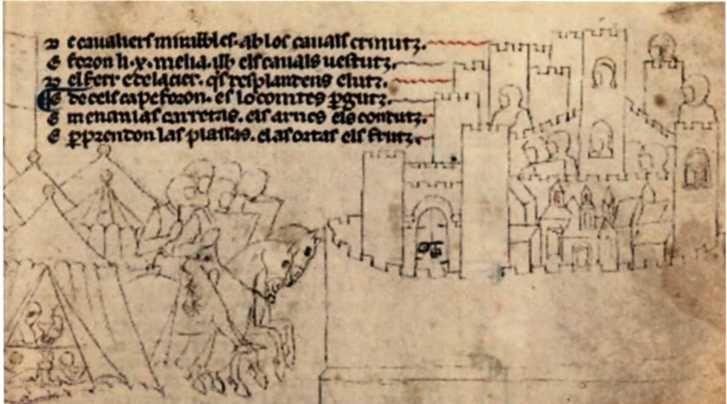 D e cavaliers mirables. ab los cavals crenutz.
E foron .ii. x. melia. ilh els cavals vestutz.
D el ferr e del acier. qs resplantens e lutz.
E docels cape foron. es lo comtes pgutz.
E menan las carretas. els arnes els contutz.
E pprenton las plassas. elas ortas els frutz.